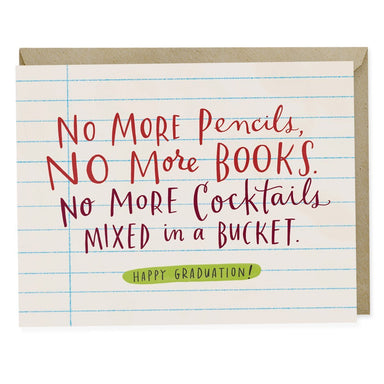 No MORE Pencils,
NO More BOOKS.
No MORE Cocktails
MIXED in a BUCKET.
HAPPY GRADUATION!